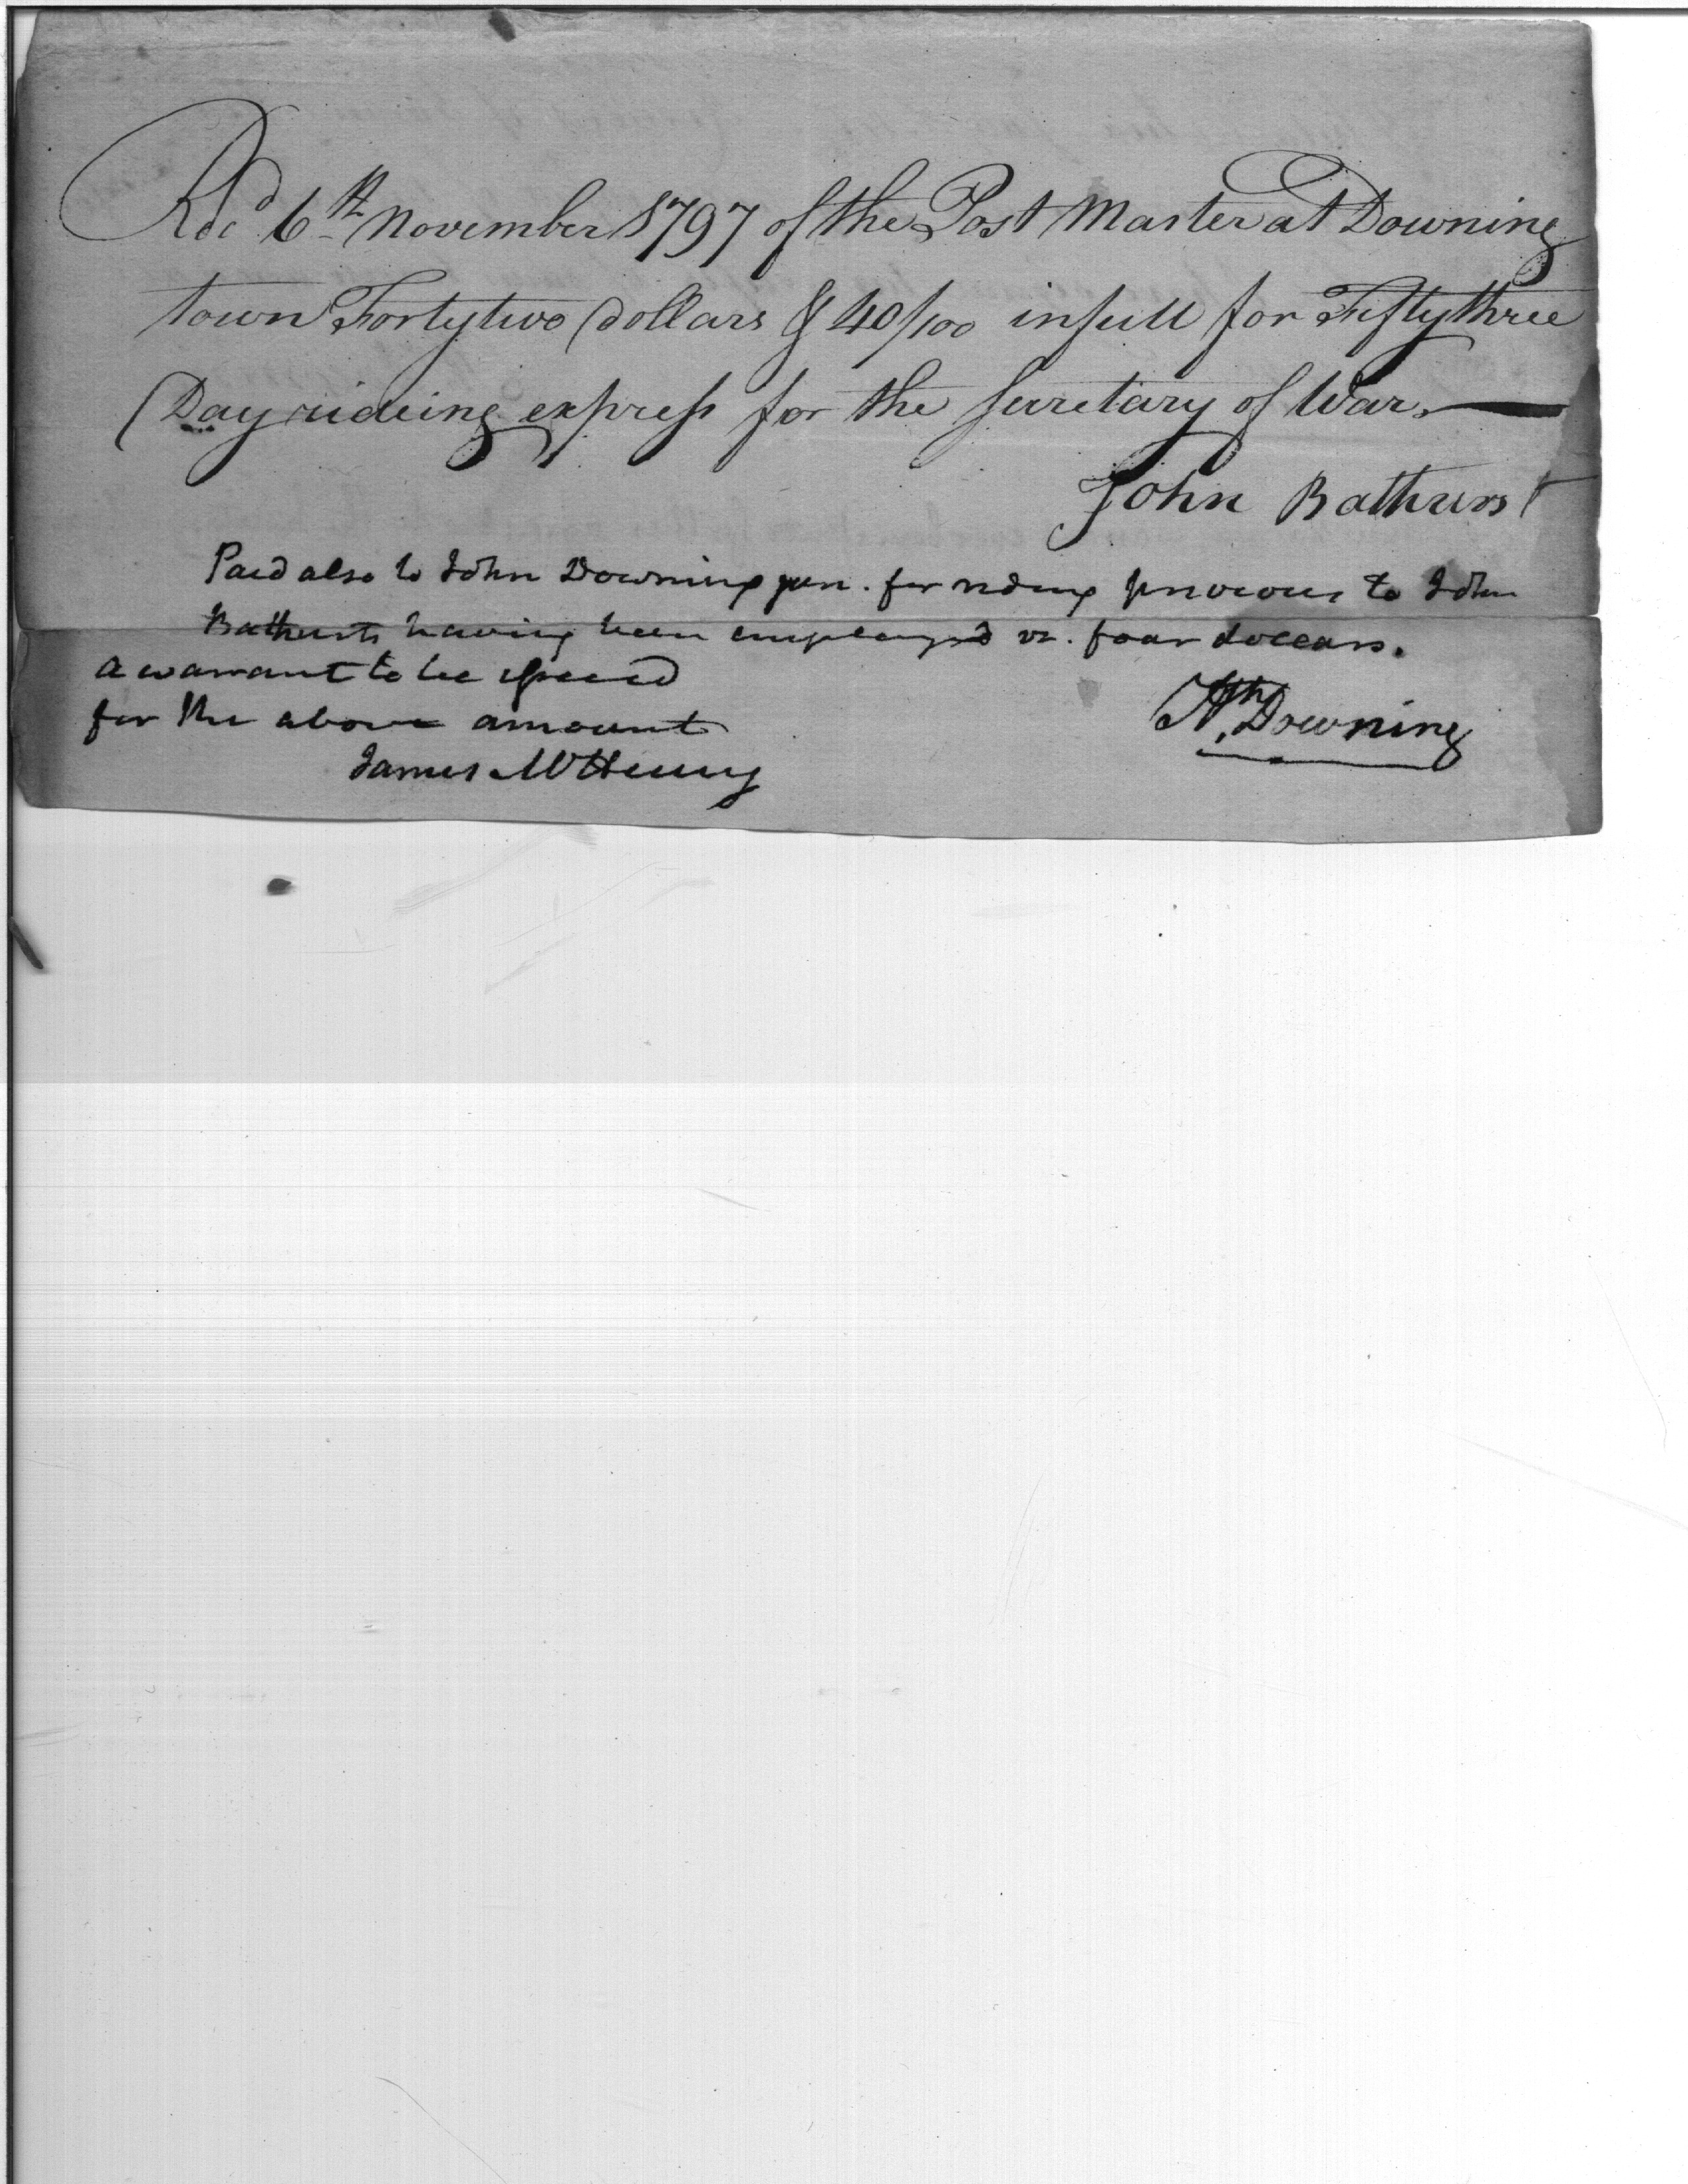 Recd 6th November 1797 of the Post Master at Downing
town Forty two dollars & 40/100 in full for Fifty three
Day rideing express for the Secretary of War.
John Bathurst
Paid also to John Downing jun. for riding previous to John
Bathursts having been employed vz. four dollars.
A warrant to be issued
for the above amount
James McHenry
Downing